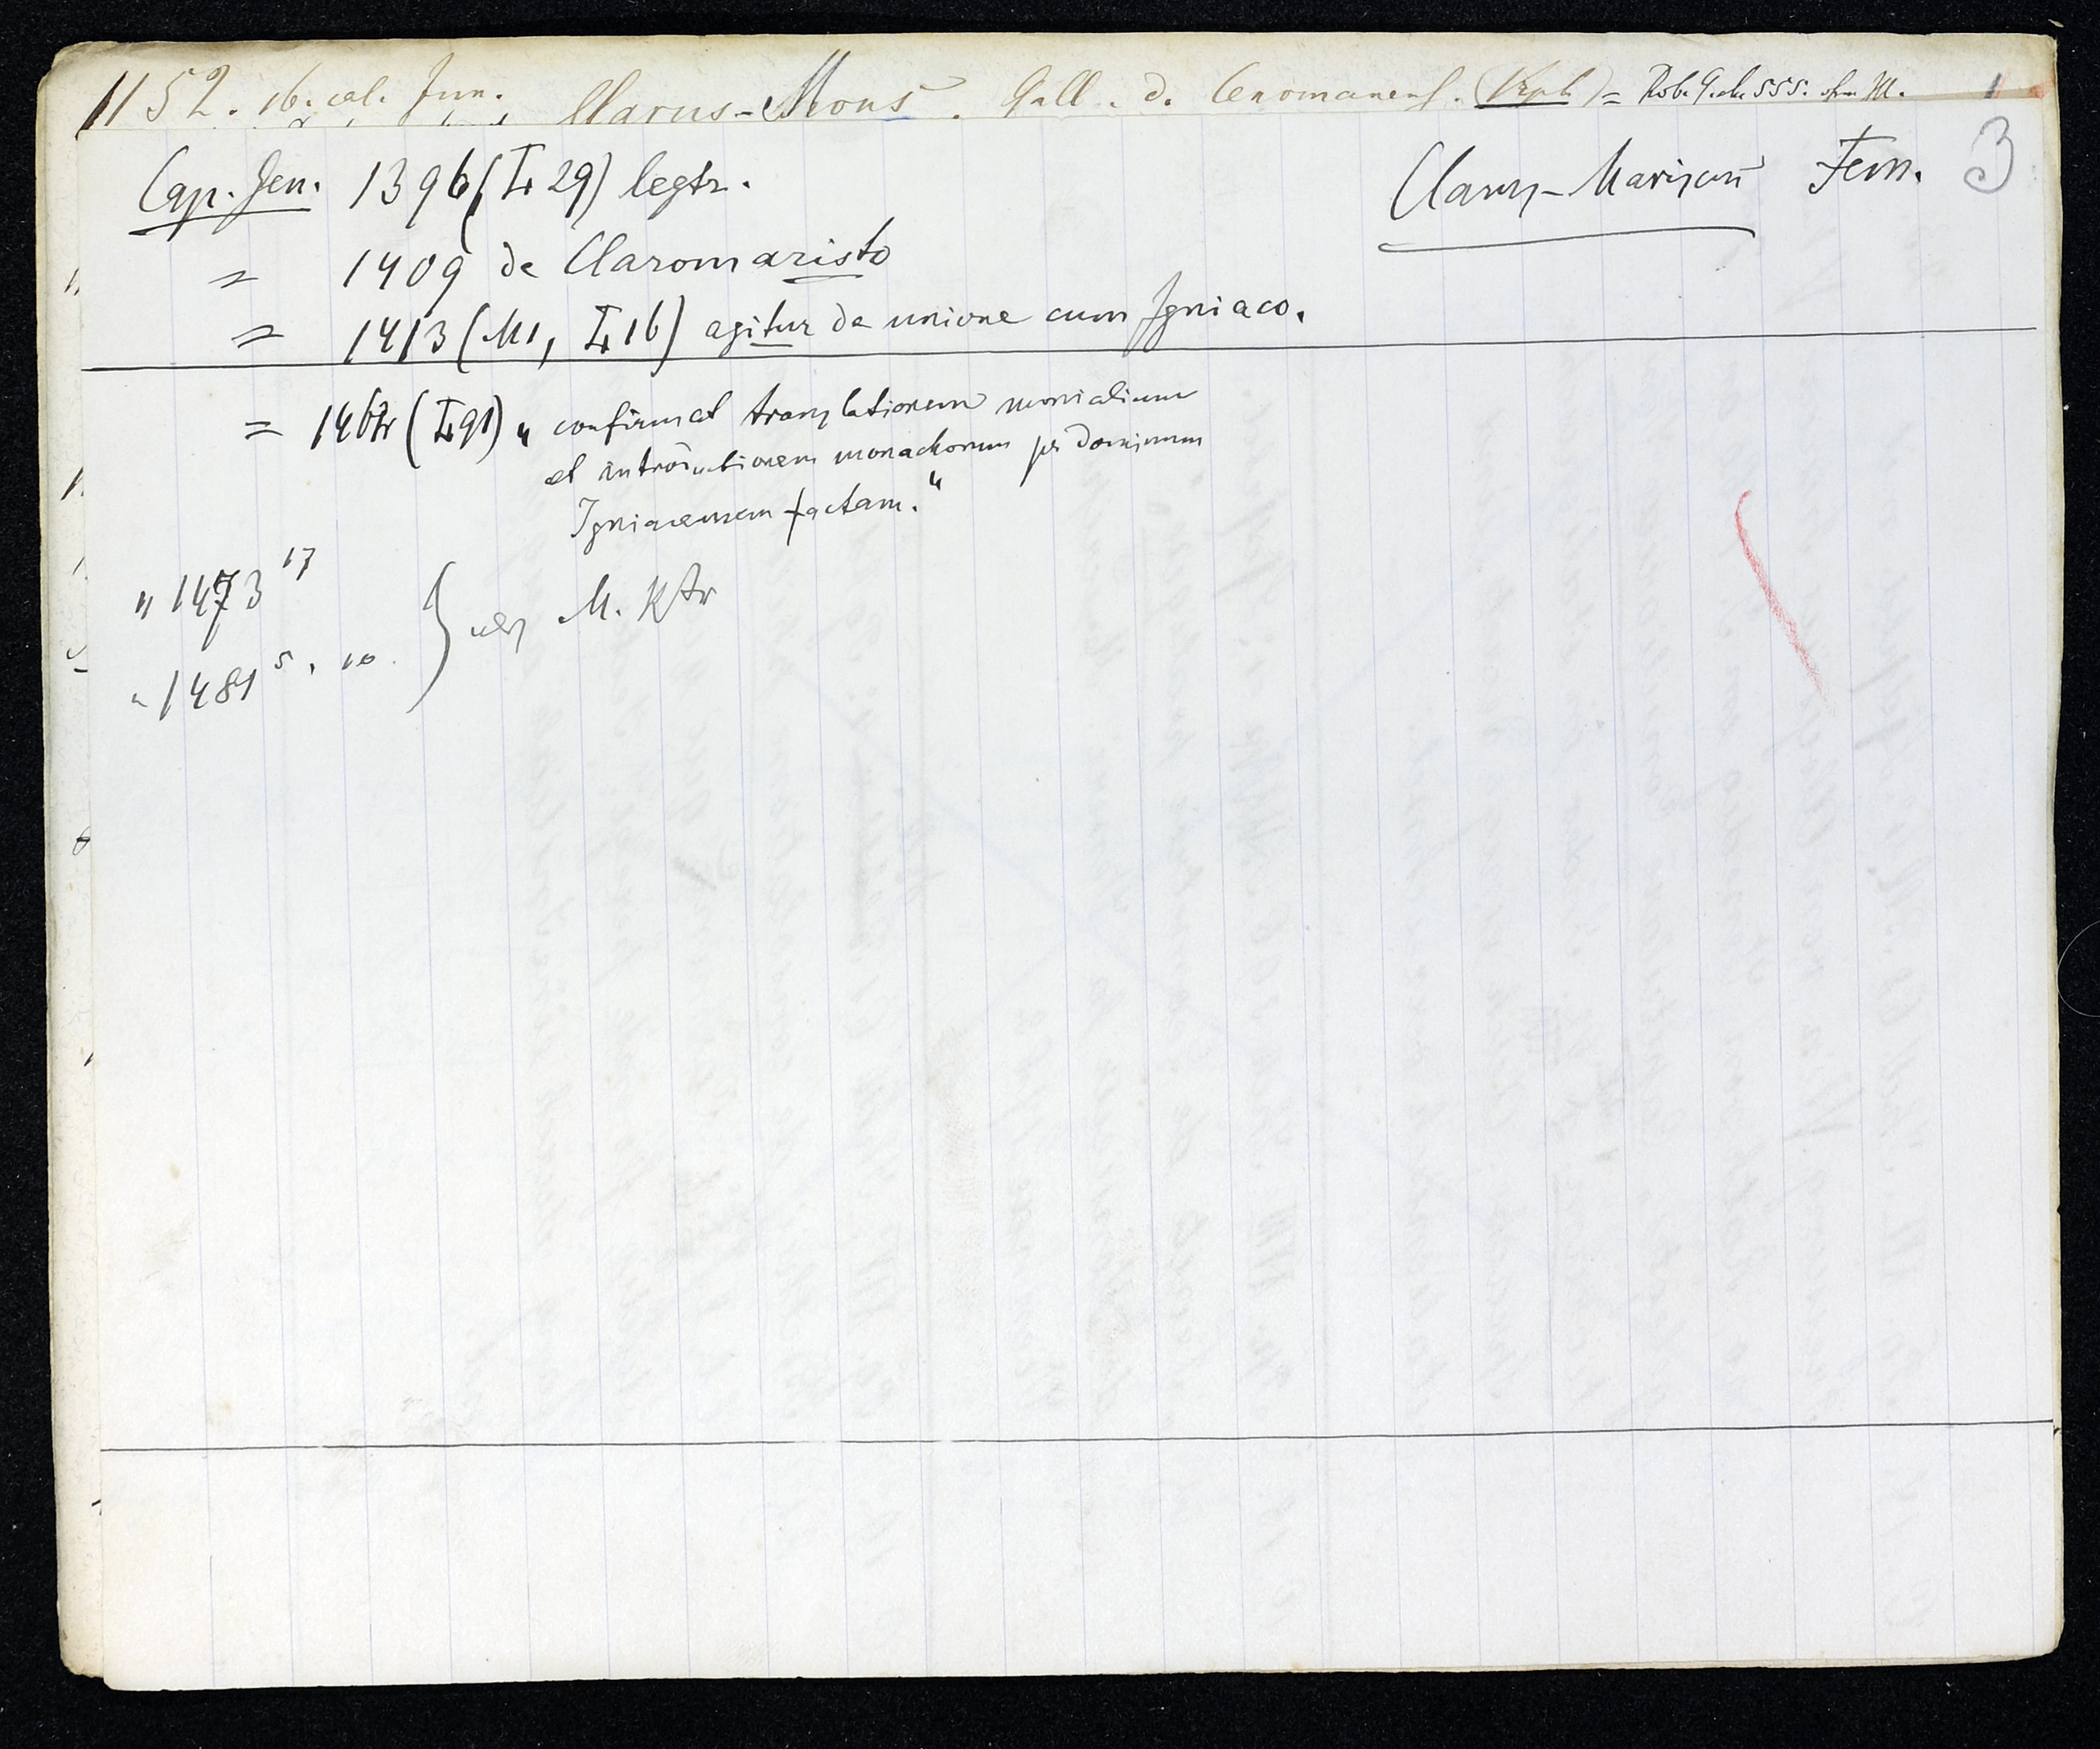 1152. 16. cal. Jun. Clarus-Mons. Gall. d. Cenomanens. =
Cap. Gen. 1396 (L 29) legtr. Clarus-Mariscus Fem. 3
= 1409 de Claromaristo
= 1413 (M1, L 16) agitur de unione cum Igniaco.
= (L 91) „ confirmat translationem monialium
et introductionem monachorum per dominum
Igniacensem factam."
" 1473 17
" 1481 5, 10. } M.